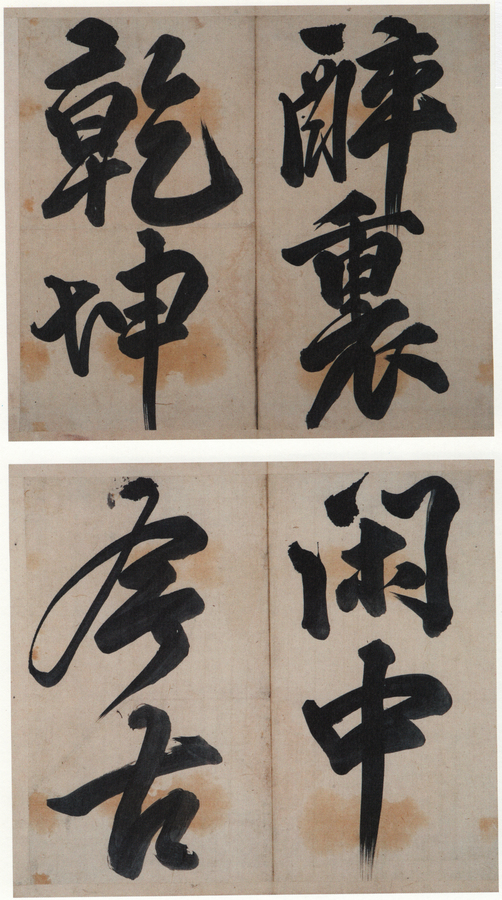 醉裏
乾坤
閑中
今古